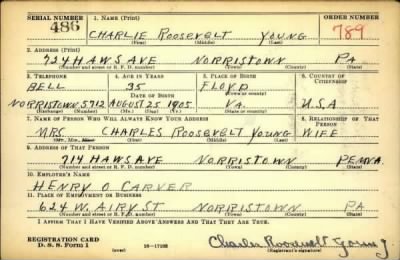 SERIAL NUMBER 1. NAME (Print) ORDER NUMBER
486 CHARLIE ROOSEVELT YOUNG 789
(First) (Middle) (Last)
2. ADDRESS (Print)
724 HAWS AVE NORRISTOWN PA
(Number and street or R. F. D. number) (Town) (County) (State)
3. TELEPHONE 4. AGE IN YEARS 5. PLACE OF BIRTH 6. COUNTRY OF CITIZENSHIP
BELL 35 FLOYD
DATE OF BIRTH (Town or county)
NORRISTOWN 5712 AUGUST 25 1905 VA. U.S.A
(Exchange) (Number) (Mo.) (Day) (Yr.) (State or country)
7. NAME OF PERSON WHO WILL ALWAYS KNOW YOUR ADDRESS 8. RELATIONSHIP OF THAT PERSON
MRS CHARLES ROOSEVELT YOUNG WIFE
(Mr., Mrs., Miss) (First) (Middle) (Last)
9. ADDRESS OF THAT PERSON
714 HAWS AVE NORRISTOWN PENNA.
(Number and street or R. F. D. number) (Town) (County) (State)
10. EMPLOYER'S NAME
HENRY O CARVER
11. PLACE OF EMPLOYMENT OR BUSINESS
624 W. AIRY ST NORRISTOWN PA
(Number and street or R. F. D. number) (Town) (County) (State)
I AFFIRM THAT I HAVE VERIFIED ABOVE ANSWERS AND THAT THEY ARE TRUE.
REGISTRATION CARD
D. S. S. Form 1 (over) 16—17105 Charles Roosevelt Young
(Registrant's signature)